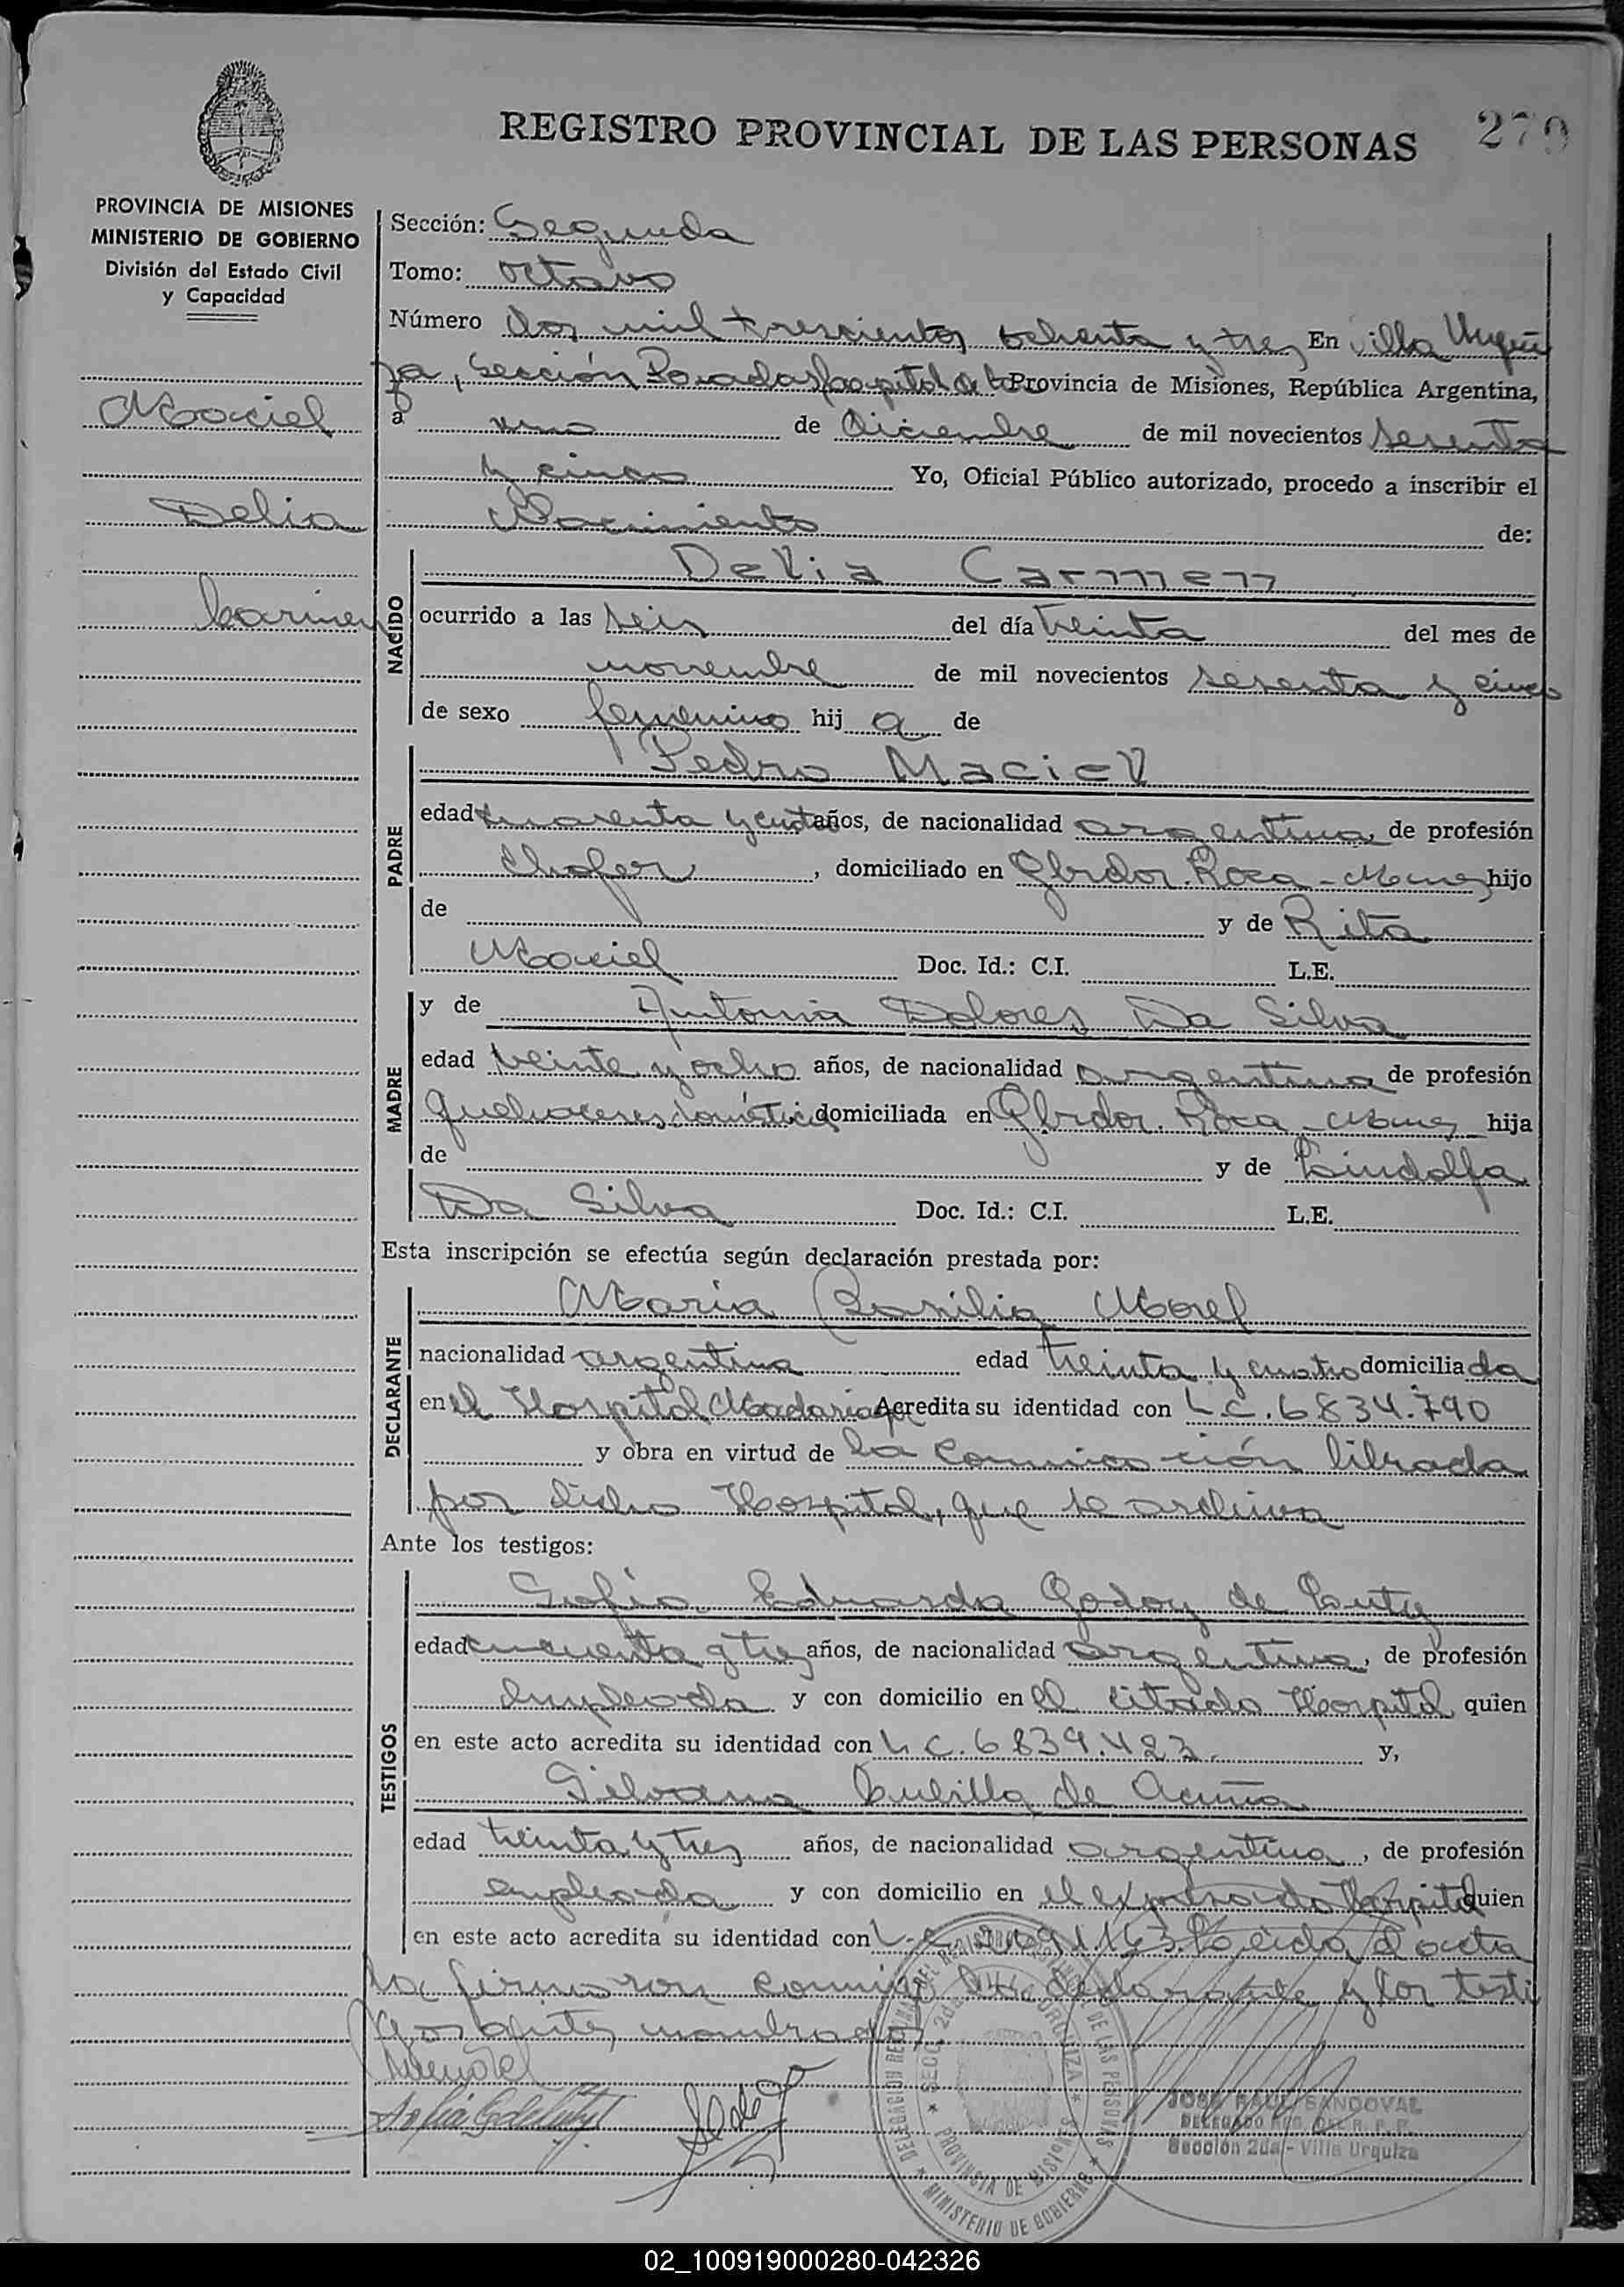 REGISTRO PROVINCIAL DE LAS PERSONAS
270
PROVINCIA DE MISIONES
MINISTERIO DE GOBIERNO
División del Estado Civil
y Capacidad
Maciel
Delia
Carmen
Sección: Segunda
Tomo: octavo
Número Dos mil trescientos ochenta y tres En Villa Urqui
za, Sección Posadas, Capital de la Provincia de Misiones, República Argentina,
a uno de Diciembre de mil novecientos sesenta
y cinco Yo, Oficial Público autorizado, procedo a inscribir el
Nacimiento de:
NACIDO
Delia Carmen
ocurrido a las seis del día treinta del mes de
noviembre de mil novecientos sesenta y cinco
de sexo femenino hij a de
PADRE
Pedro Maciel
edad cuarenta y cuatro años, de nacionalidad argentina, de profesión
Chofer, domiciliado en Gbrdor. Roca - Mnes hijo
de y de Rita
Maciel Doc. Id.: C.I. L.E.
MADRE
y de Antonia Dolores Da Silva
edad veinte y ocho años, de nacionalidad argentina de profesión
Quehaceres domésticos domiciliada en Gbrdor. Roca - Mnes hija
de y de Lindolfa
Da Silva Doc. Id.: C.I. L.E.
Esta inscripción se efectúa según declaración prestada por:
DECLARANTE
María Basilia Morel
nacionalidad argentina edad treinta y cuatro domiciliada
en el Hospital Madariaga Acredita su identidad con L.C. 6834.790
y obra en virtud de la comunicación librada
por dicho Hospital, que se archiva
Ante los testigos:
TESTIGOS
Sofía Eduarda Godoy de
edad cincuenta y tres años, de nacionalidad argentina, de profesión
empleada y con domicilio en el citado Hospital quien
en este acto acredita su identidad con L.C. 6839.423. y,
Silvana Cubilla de Acuña
edad treinta y tres años, de nacionalidad argentina, de profesión
empleada y con domicilio en el expresado Hospital quien
en este acto acredita su identidad con L.C. Leída el acta
la firmaron conmigo la declarante y los testi
gos antes nombrados
DELEGACION REGIONAL DEL REGISTRO PROVINCIAL DE LAS PERSONAS
SECC. 2da. VILLA URQUIZA
PROVINCIA DE MISIONES
MINISTERIO DE GOBIERNO
JOSE RAUL SANDOVAL
DELEGADO REG. DEL R. P. P.
Sección 2da - Villa Urquiza
02_100919000280-042326